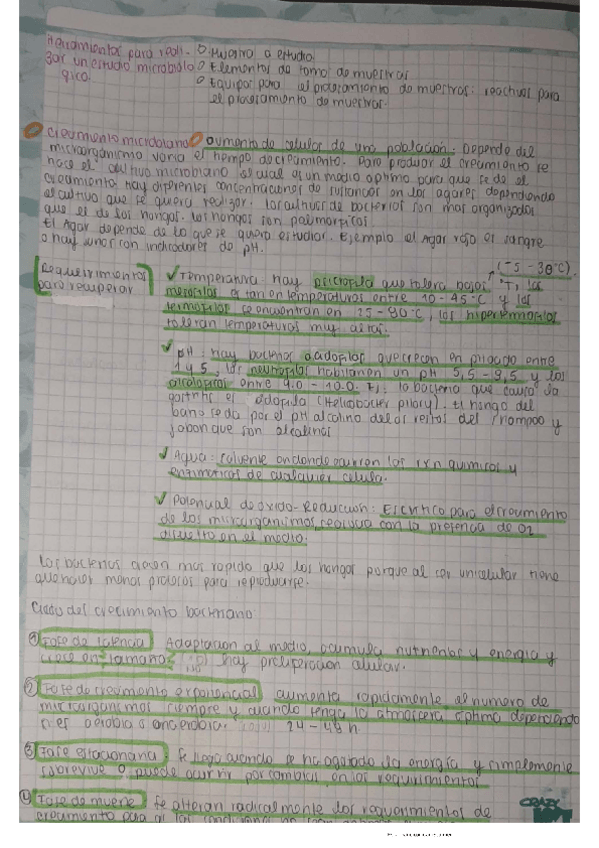 Herramientas para reali- o Muestra a estudio
zar un estudio microbiolo o Elementos de toma de muestras
gico. o Equipos para el procesamiento de muestras: reactivos para
el procesamiento de muestras.
Crecimiento microbiano aumento de celulas de una población. Depende del
microorganismo varia el tiempo de crecimiento. Para producir el crecimiento se
hace el cultivo microbiano el cual es un medio optimo para que se de el
crecimiento. hay diferentes concentraciones de en los agares dependiendo
el cultivo que se quiera realizar. los cultivos de bacterias son mas organizados
que el de los hongos. los hongos son
El Agar depende de lo que se quiera estudiar. Ejemplo el Agar rojo es sangre
o hay unos con indicadores de pH.
(-5 - 30°C).
Requerimientos ✓ Temperatura: hay psicrofila que tolera bajas T°, las
para recuperar mesofilas estan en temperaturas entre 10-45°C y las
termofilas se encuentran en 25-80°C, las hipertermofilas
toleran temperaturas muy altas.
✓ pH: hay bacterias acidofilas que crecen en pH acido entre
1 y 5, las neutrofilas habitan en un pH 5,5-8,5 y las
alcalofilas entre 9.0-10.0. Ej: la bacteria que causa la
gastritis es (Heliobacter pilory). El hongo del
baño se da por el pH alcalino de los restos del shampoo y
jabon que son alcalinos
✓ Agua: solvente en donde ocurren las rxn quimicas y
enzimaticas de cualquier celula.
✓ Potencial de oxido-Reducción: Es critico para el crecimiento
de los microrganismos, con la presencia de O2
disuelto en el medio.
las bacterias crecen mas rapido que los hongos porque al ser unicelular tiene
que hacer menos procesos para reproducirse.
Ciclo del crecimiento bacteriano:
① Fase de latencia Adaptacion al medio, acumula nutrientes y energia y
crece en tamaño. hay proliferacion celular.
② Fase de crecimiento exponencial aumenta rapidamente el numero de
microrganismos siempre y cuando tenga la atmosfera optima dependiendo
si es aerobia o anaerobia. 24-48h
③ Fase estacionaria: Se llega cuando se ha agotado la energia y simplemente
sobrevive o puede ocurrir por cambios en los requerimientos
④ Fase de muerte: Se alteran radicalmente los requerimientos de
crecimiento
CRAZY